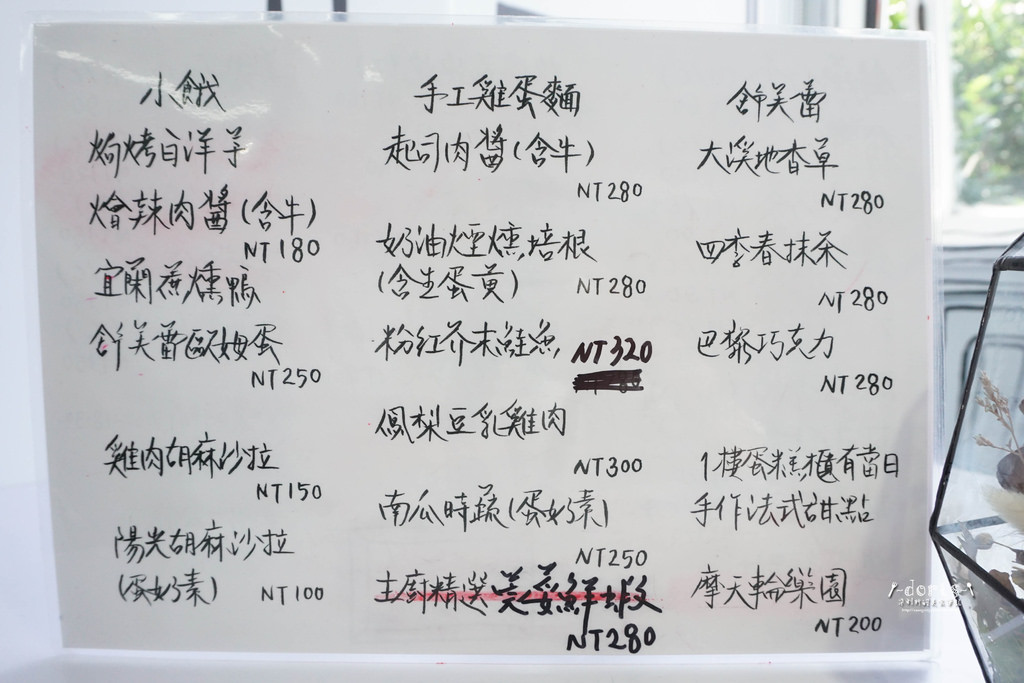 小餓
焗烤白洋芋
燴辣肉醬(含牛)
NT180
宜蘭蔗燻鴨
舒芙蕾歐姆蛋
NT250
雞肉胡麻沙拉
NT150
陽光胡麻沙拉
(蛋奶素) NT100
手工雞蛋麵
起司肉醬(含牛)
NT280
奶油煙燻培根
(含生蛋黃) NT280
粉紅芥末鮭魚 NT320
鳳梨豆乳雞肉
NT300
南瓜時蔬(蛋奶素)
NT250
主廚精選 美姜鮮蝦
NT280
舒芙蕾
大溪地香草
NT280
四季春抹茶
NT280
巴黎巧克力
NT280
1樓蛋糕櫃有當日
手作法式甜點
摩天輪樂園
NT200